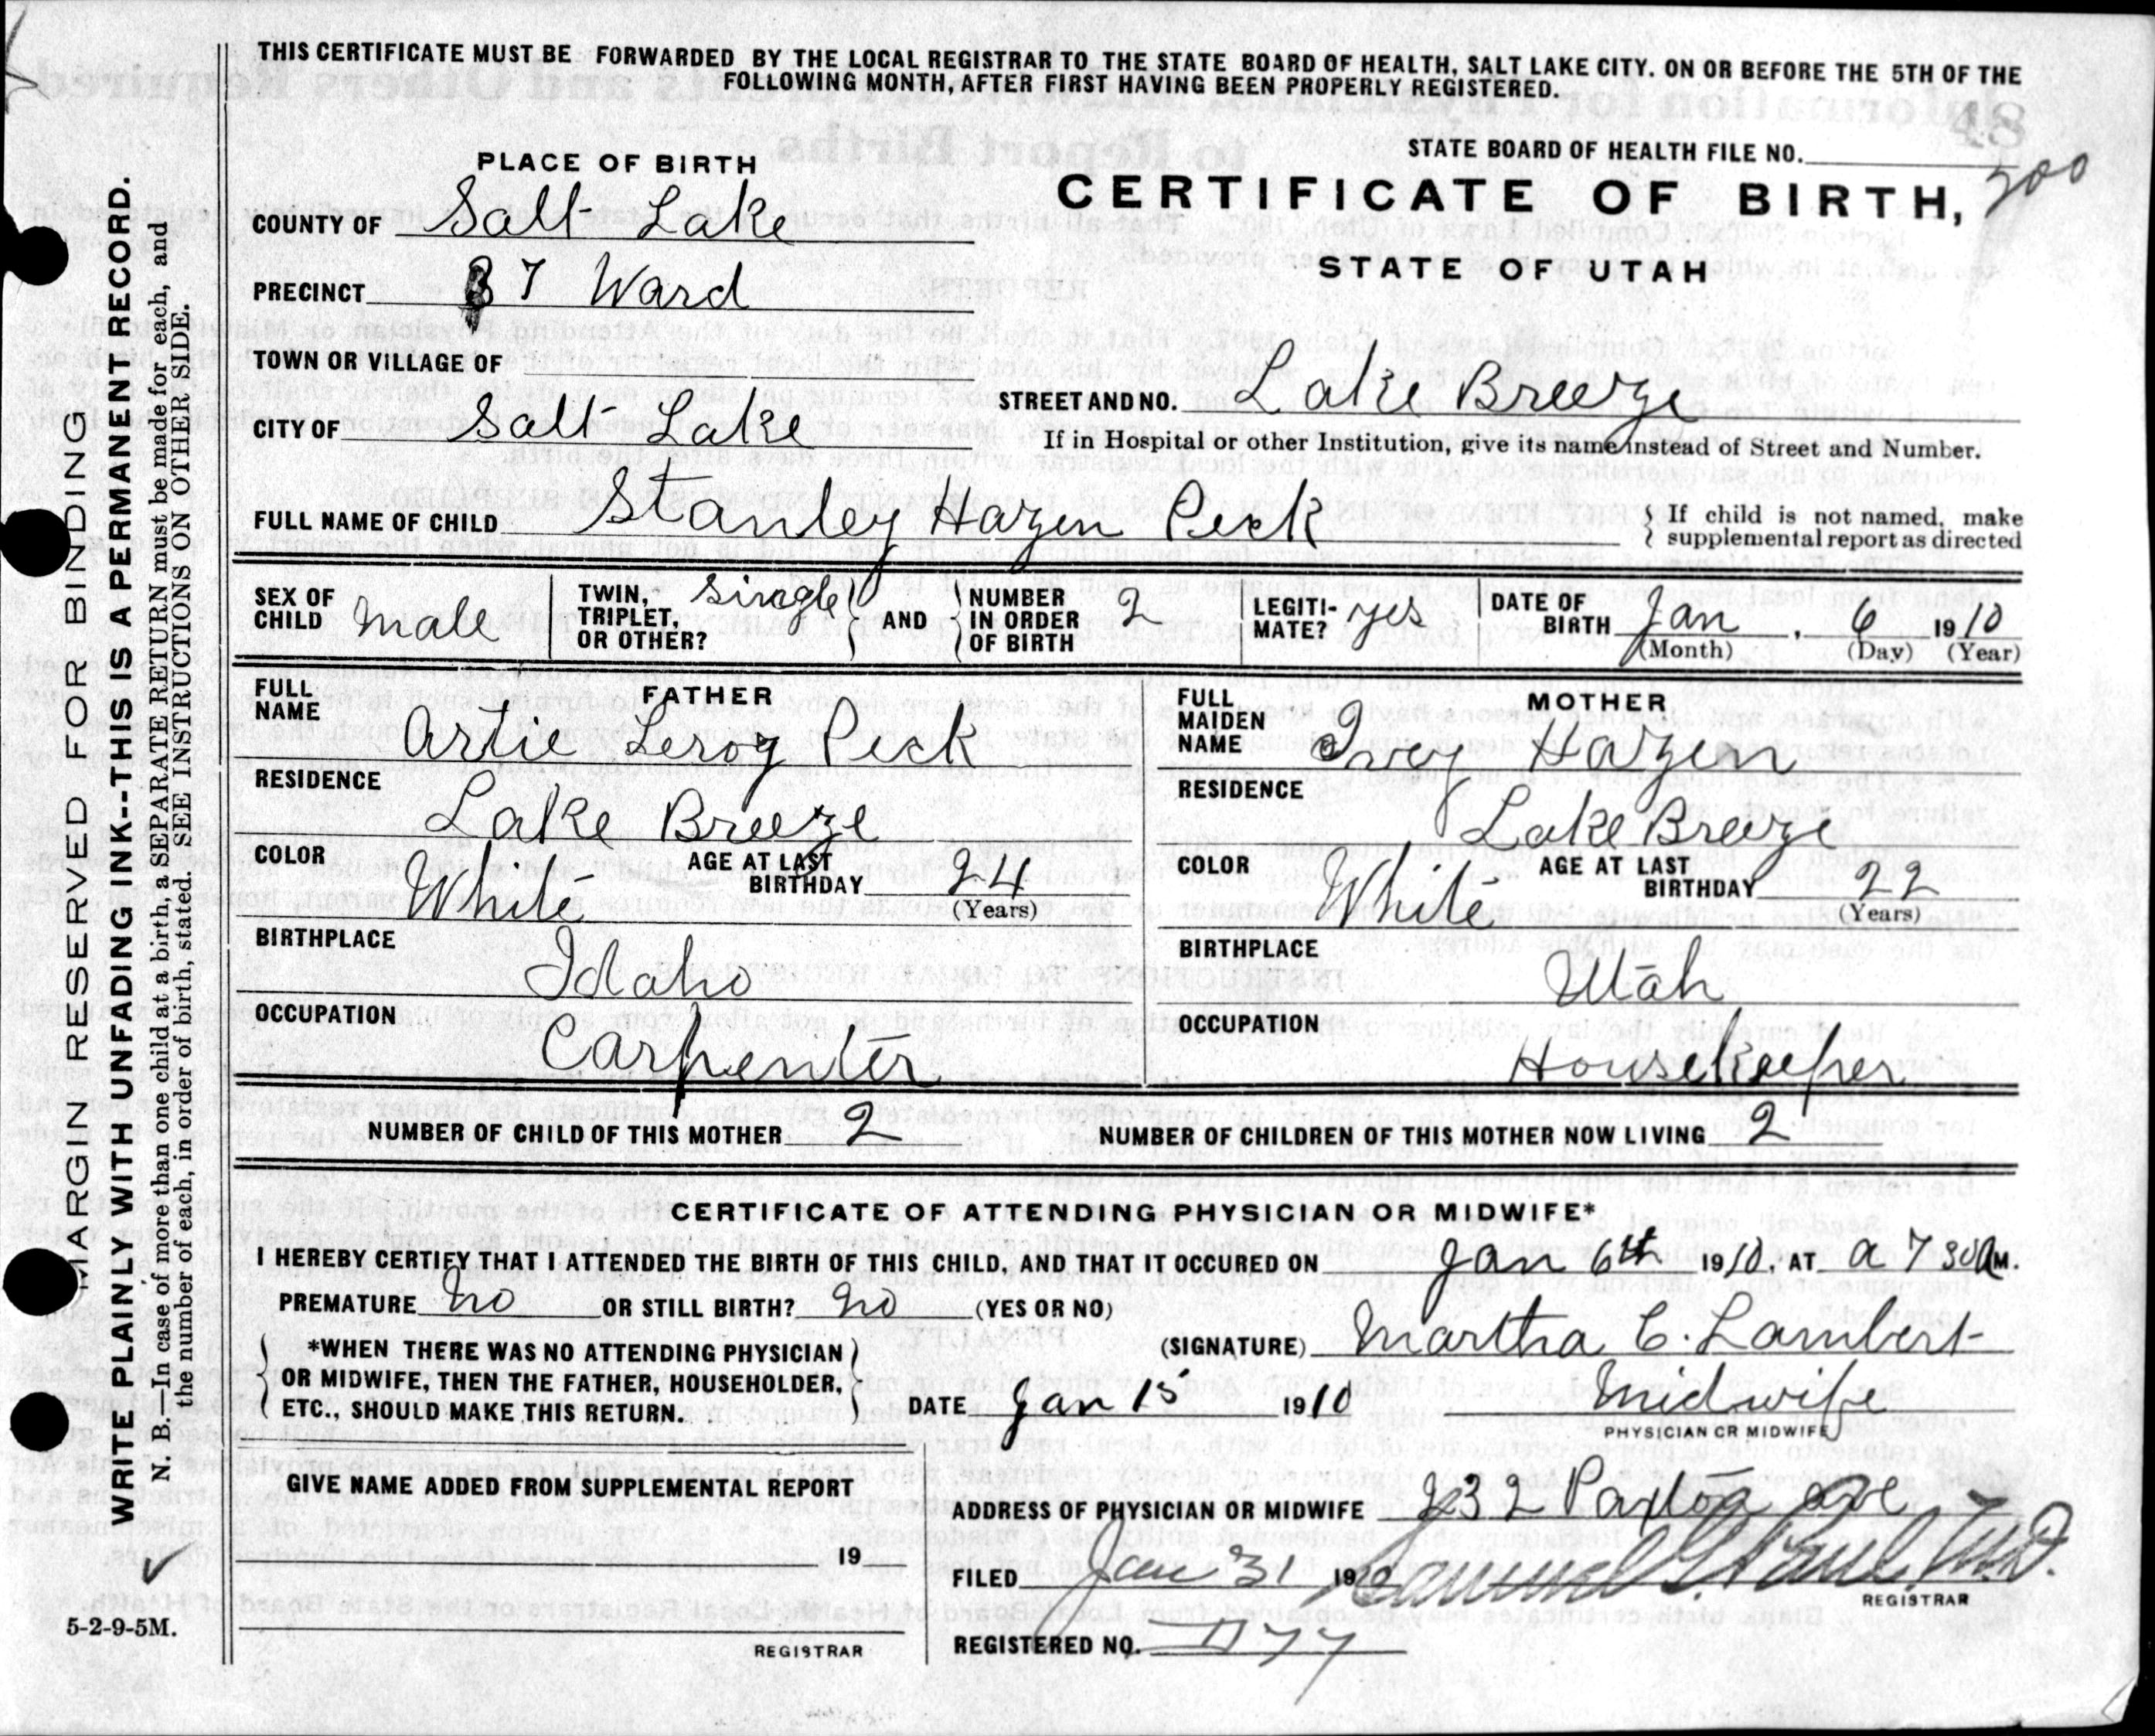 THIS CERTIFICATE MUST BE FORWARDED BY THE LOCAL REGISTRAR TO THE STATE BOARD OF HEALTH, SALT LAKE CITY. ON OR BEFORE THE 5TH OF THE
FOLLOWING MONTH, AFTER FIRST HAVING BEEN PROPERLY REGISTERED.
STATE BOARD OF HEALTH FILE NO.
CERTIFICATE OF BIRTH,
STATE OF UTAH
PLACE OF BIRTH
COUNTY OF Salt Lake
PRECINCT 7 Ward
TOWN OR VILLAGE OF
CITY OF Salt Lake
STREET AND NO. Lake Breeze
If in Hospital or other Institution, give its name instead of Street and Number.
FULL NAME OF CHILD Stanley Hazen Peck
If child is not named, make
supplemental report as directed
SEX OF CHILD male
TWIN, TRIPLET, OR OTHER? single
AND NUMBER IN ORDER OF BIRTH 2
LEGITIMATE? yes
DATE OF BIRTH Jan, 6 1910
(Month) (Day) (Year)
FATHER
FULL NAME Artie Leroy Peck
RESIDENCE Lake Breeze
COLOR White AGE AT LAST BIRTHDAY 24
(Years)
BIRTHPLACE Idaho
OCCUPATION Carpenter
MOTHER
FULL MAIDEN NAME Ivey Hazen
RESIDENCE Lake Breeze
COLOR White AGE AT LAST BIRTHDAY 22
(Years)
BIRTHPLACE Utah
OCCUPATION Housekeeper
NUMBER OF CHILD OF THIS MOTHER 2 NUMBER OF CHILDREN OF THIS MOTHER NOW LIVING 2
CERTIFICATE OF ATTENDING PHYSICIAN OR MIDWIFE*
I HEREBY CERTIFY THAT I ATTENDED THE BIRTH OF THIS CHILD, AND THAT IT OCCURED ON Jan 6th 1910, AT a 7 30 AM.
PREMATURE no OR STILL BIRTH? no (YES OR NO)
*WHEN THERE WAS NO ATTENDING PHYSICIAN
OR MIDWIFE, THEN THE FATHER, HOUSEHOLDER,
ETC., SHOULD MAKE THIS RETURN.
(SIGNATURE) Martha C. Lambert
DATE Jan 15 1910 Midwife
PHYSICIAN OR MIDWIFE
GIVE NAME ADDED FROM SUPPLEMENTAL REPORT
19
REGISTRAR
ADDRESS OF PHYSICIAN OR MIDWIFE 232 Paxton ave
FILED Jan 31 1910 Samuel G. Paul, M.D.
REGISTRAR
REGISTERED NO.
MARGIN RESERVED FOR BINDING
WRITE PLAINLY WITH UNFADING INK--THIS IS A PERMANENT RECORD.
N. B.—In case of more than one child at a birth, a SEPARATE RETURN must be made for each, and
the number of each, in order of birth, stated. SEE INSTRUCTIONS ON OTHER SIDE.
5-2-9-5M.